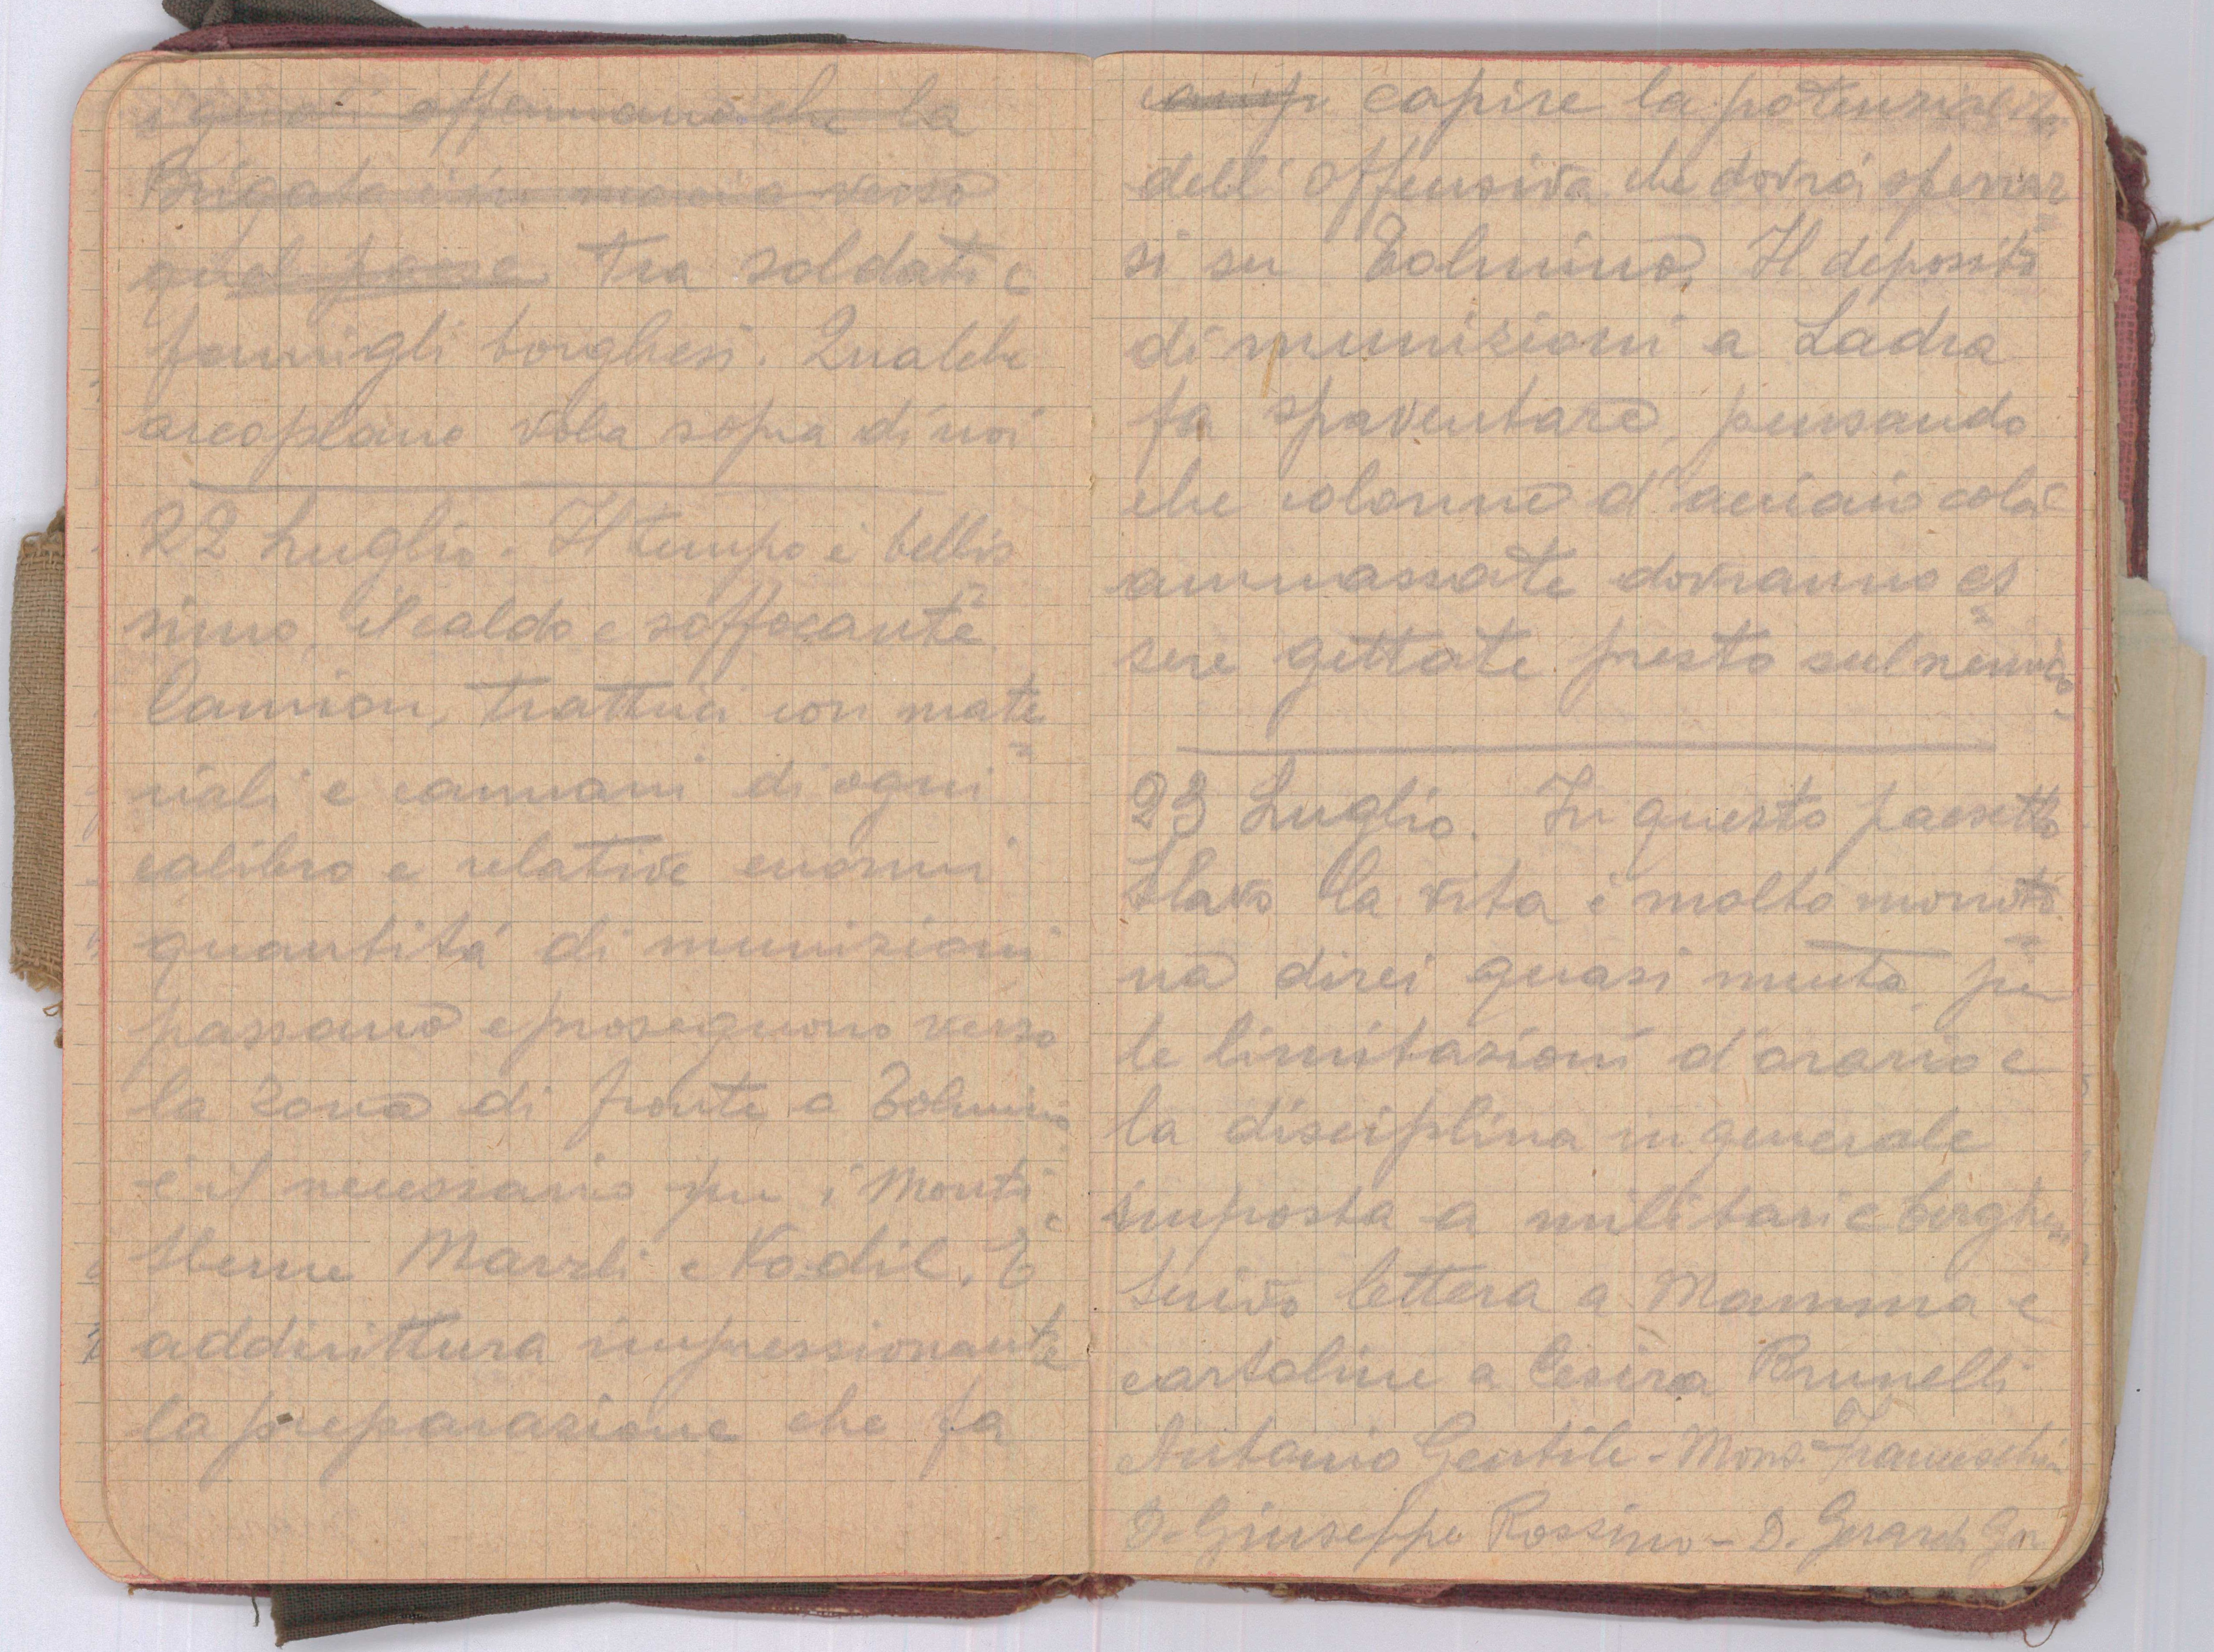 affermano che la
Brigata è in marcia verso
quel paese tra soldati e
famigli borghesi. Qualche
areoplano vola sopra di noi
22 Luglio. Il tempo è bellis
simo, il caldo e soffocante
Camion, trattrici con mate=
riali e cannoni di ogni
calibro e relative enormi
quantità di munizioni
passano e proseguono verso
la zona di fronte a Tolmino
e il necessario per i Monti
Sleme Marzli e Vodil. E
addirittura impressionante
la preparazione che fa
capire la potenzialità
dell'offensiva che dovrà sferrar=
si su Tolmino. Il deposito
di munizioni a Ladra
fa spaventare, pensando
che colonne d'acciaio colà
ammassate dovranno es=
sere gettate presto sul nemico
23 Luglio. In questo paesetto
Slavo la vita è molto monoto=
na direi quasi muta per
le limitazioni d'orario e
la disciplina in generale
imposta a militari e borghesi
Scrivo lettera a Mamma e
cartoline a Cesira Brunelli
Antonio Gentile - Mons. Franceschini
D. Giuseppe Rossino - D. Gerardo